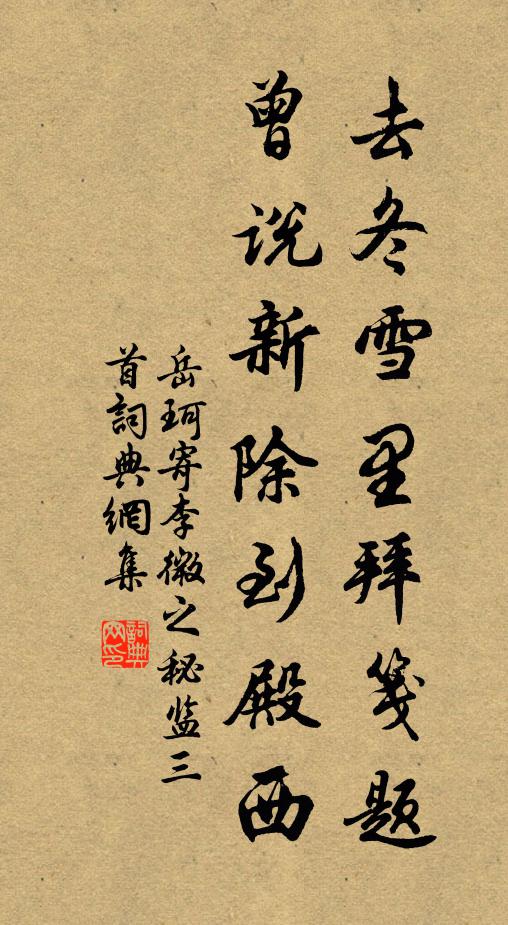 去冬雪里拜笺題
曾说新除到殿西
岳珂寄李微之秘监三
首詞典網集
詞典网印